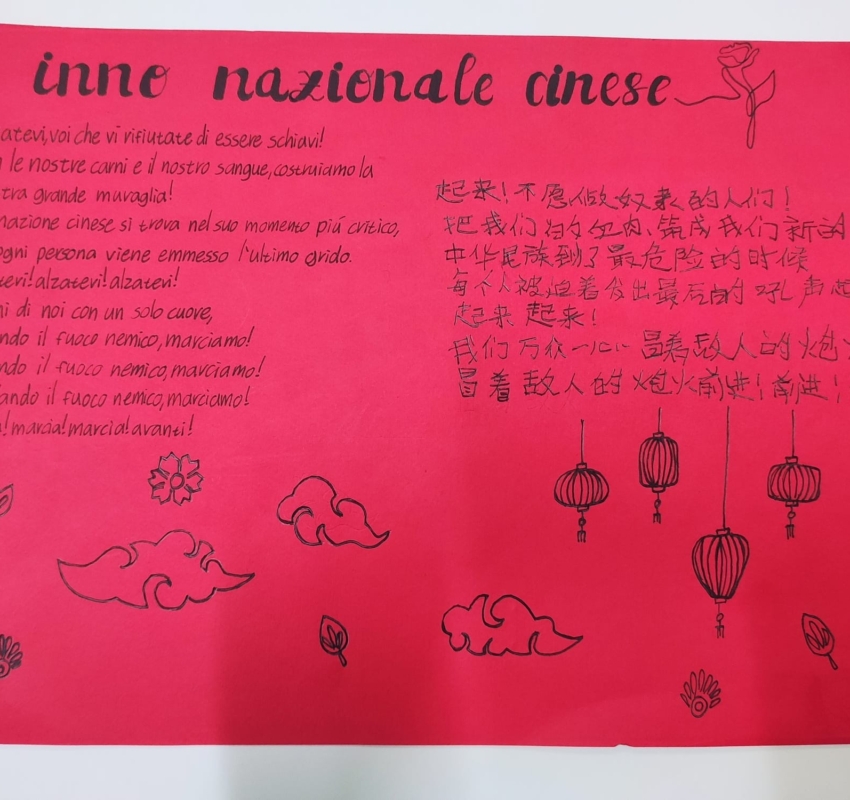 inno nazionale cinese
atevi, voi che vi rifiutate di essere schiavi!
le nostre carni e il nostro sangue, costruiamo la
tra grande muraglia!
nazione cinese si trova nel suo momento piú critico,
ogni persona viene emmesso l'ultimo grido.
tevi! alzatevi! alzatevi!
ni di noi con un solo cuore,
ndo il fuoco nemico, marciamo!
ndo il fuoco nemico, marciamo!
ando il fuoco nemico, marciamo!
! marcia! marcia! avanti!
起来！不愿做奴隶的人们！
把我们的血肉、筑成我们新的
中华民族到了最危险的时候
每个人被迫着发出最后的吼声
起来 起来！
我们万众一心 冒着敌人的炮
冒着敌人的炮火前进！前进！